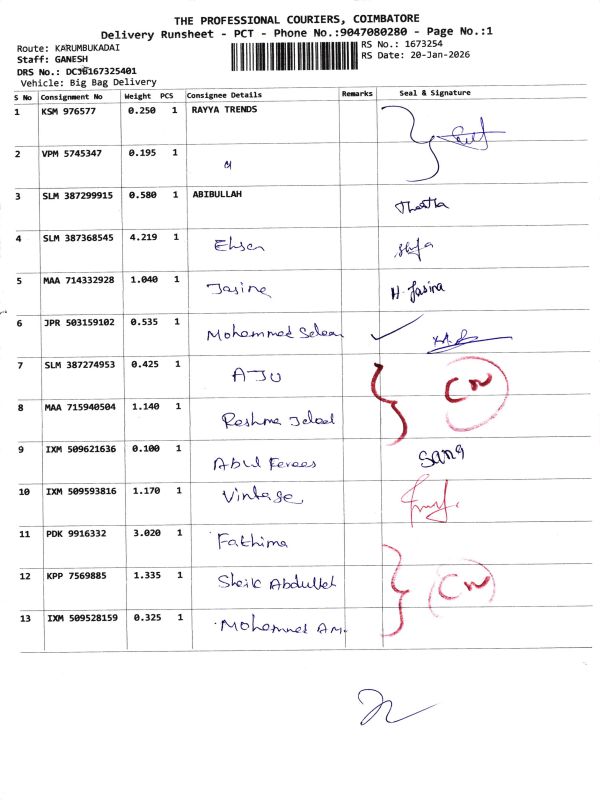 THE PROFESSIONAL COURIERS, COIMBATORE
Delivery Runsheet - PCT - Phone No.:9047080280 - Page No.:1
Route: KARUMBUKADAI
RS No.: 1673254
Staff: GANESH
RS Date: 20-Jan-2026
DRS No.: 167325401
Vehicle: Big Bag Delivery
S No Consignment No Weight PCS Consignee Details Remarks Seal & Signature
1 KSM 976577 0.250 1 RAYYA TRENDS
2 VPM 5745347 0.195 1
3 SLM 387299915 0.580 1 ABIBULLAH
4 SLM 387368545 4.219 1 Ehsan
5 MAA 714332928 1.040 1 Jasine H. Jasina
6 JPR 503159102 0.535 1 Mohammed
7 SLM 387274953 0.425 1 AJU
8 MAA 715940504 1.140 1 Reshma
9 IXM 509621636 0.100 1 Abul sang
10 IXM 509593816 1.170 1 Vintage
11 PDK 9916332 3.020 1 Fathima
12 KPP 7569885 1.335 1 Sheik Abdullah
13 IXM 509528159 0.325 1 Mohammed AM.